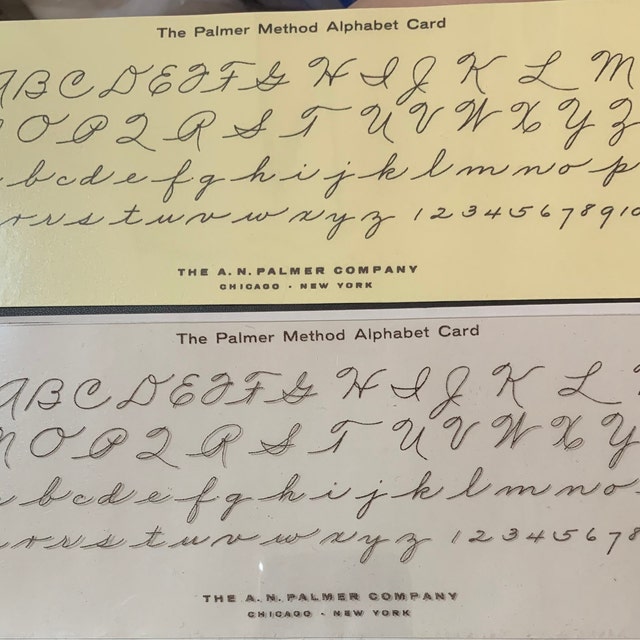 The Palmer Method Alphabet Card
A B C D E F F G H I J K L M
O P Q R S T U V W X Y Z
b c d e f g h i j k l m n o p
r r s t u v w x y z 1 2 3 4 5 6 7 8 9 10
THE A. N. PALMER COMPANY
CHICAGO · NEW YORK
The Palmer Method Alphabet Card
A B C D E F F G H I J K L
N O P Q R S T U V W X Y
b c d e f g h i j k l m n o
r r s t u v w x y z 1 2 3 4 5 6 7 8
THE A. N. PALMER COMPANY
CHICAGO · NEW YORK